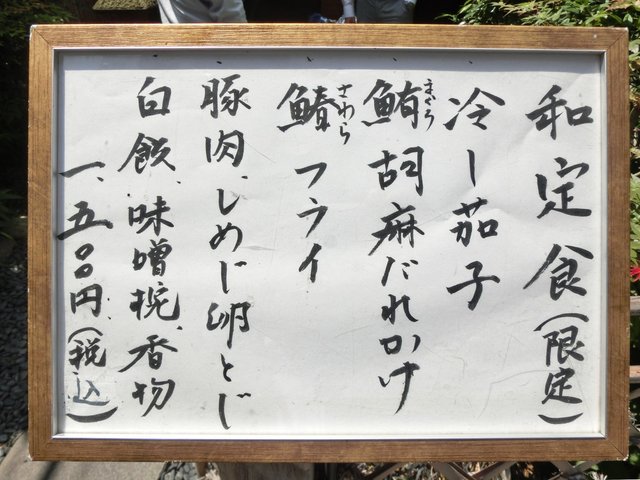 和定食(限定)
冷し茄子
鮪胡麻だれかけ
まぐろ
鰆フライ
さわら
豚肉、しめじ卵とじ
白飯、味噌椀、香物
一、五〇〇円(税込)